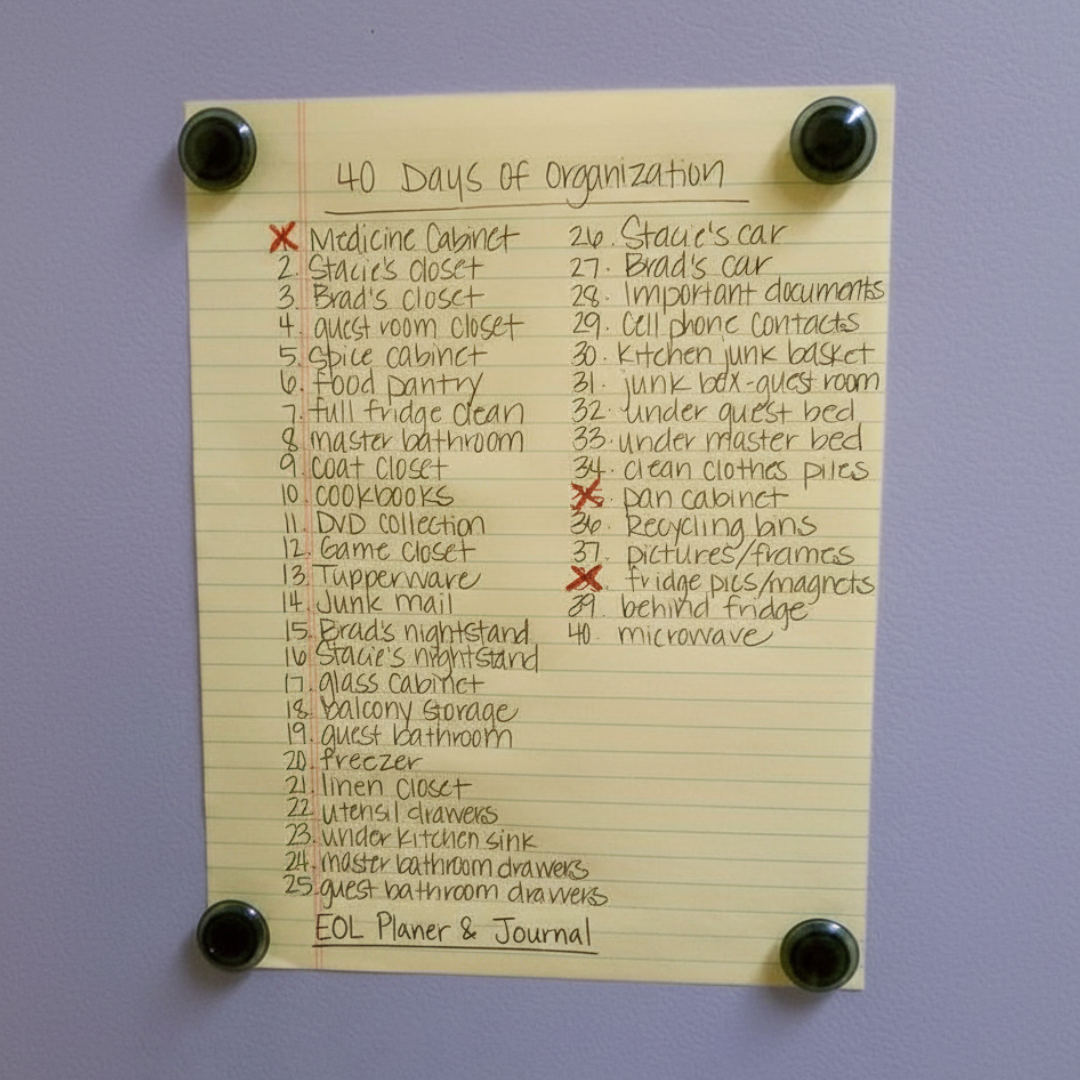 40 Days of Organization
1. Medicine Cabinet
2. Stacie's closet
3. Brad's closet
4. guest room closet
5. Spice cabinet
6. food pantry
7. full fridge clean
8. master bathroom
9. coat closet
10. cookbooks
11. DVD collection
12. Game closet
13. Tupperware
14. Junk mail
15. Brad's nightstand
16. Stacie's nightstand
17. glass cabinet
18. balcony storage
19. guest bathroom
20. freezer
21. linen closet
22. utensil drawers
23. under kitchen sink
24. master bathroom drawers
25. guest bathroom drawers
26. Stacie's car
27. Brad's car
28. Important documents
29. Cell phone contacts
30. kitchen junk basket
31. junk box-guest room
32. under guest bed
33. under master bed
34. clean clothes piles
35. pan cabinet
36. Recycling bins
37. pictures/frames
38. fridge pics/magnets
39. behind fridge
40. microwave
EOL Planer & Journal